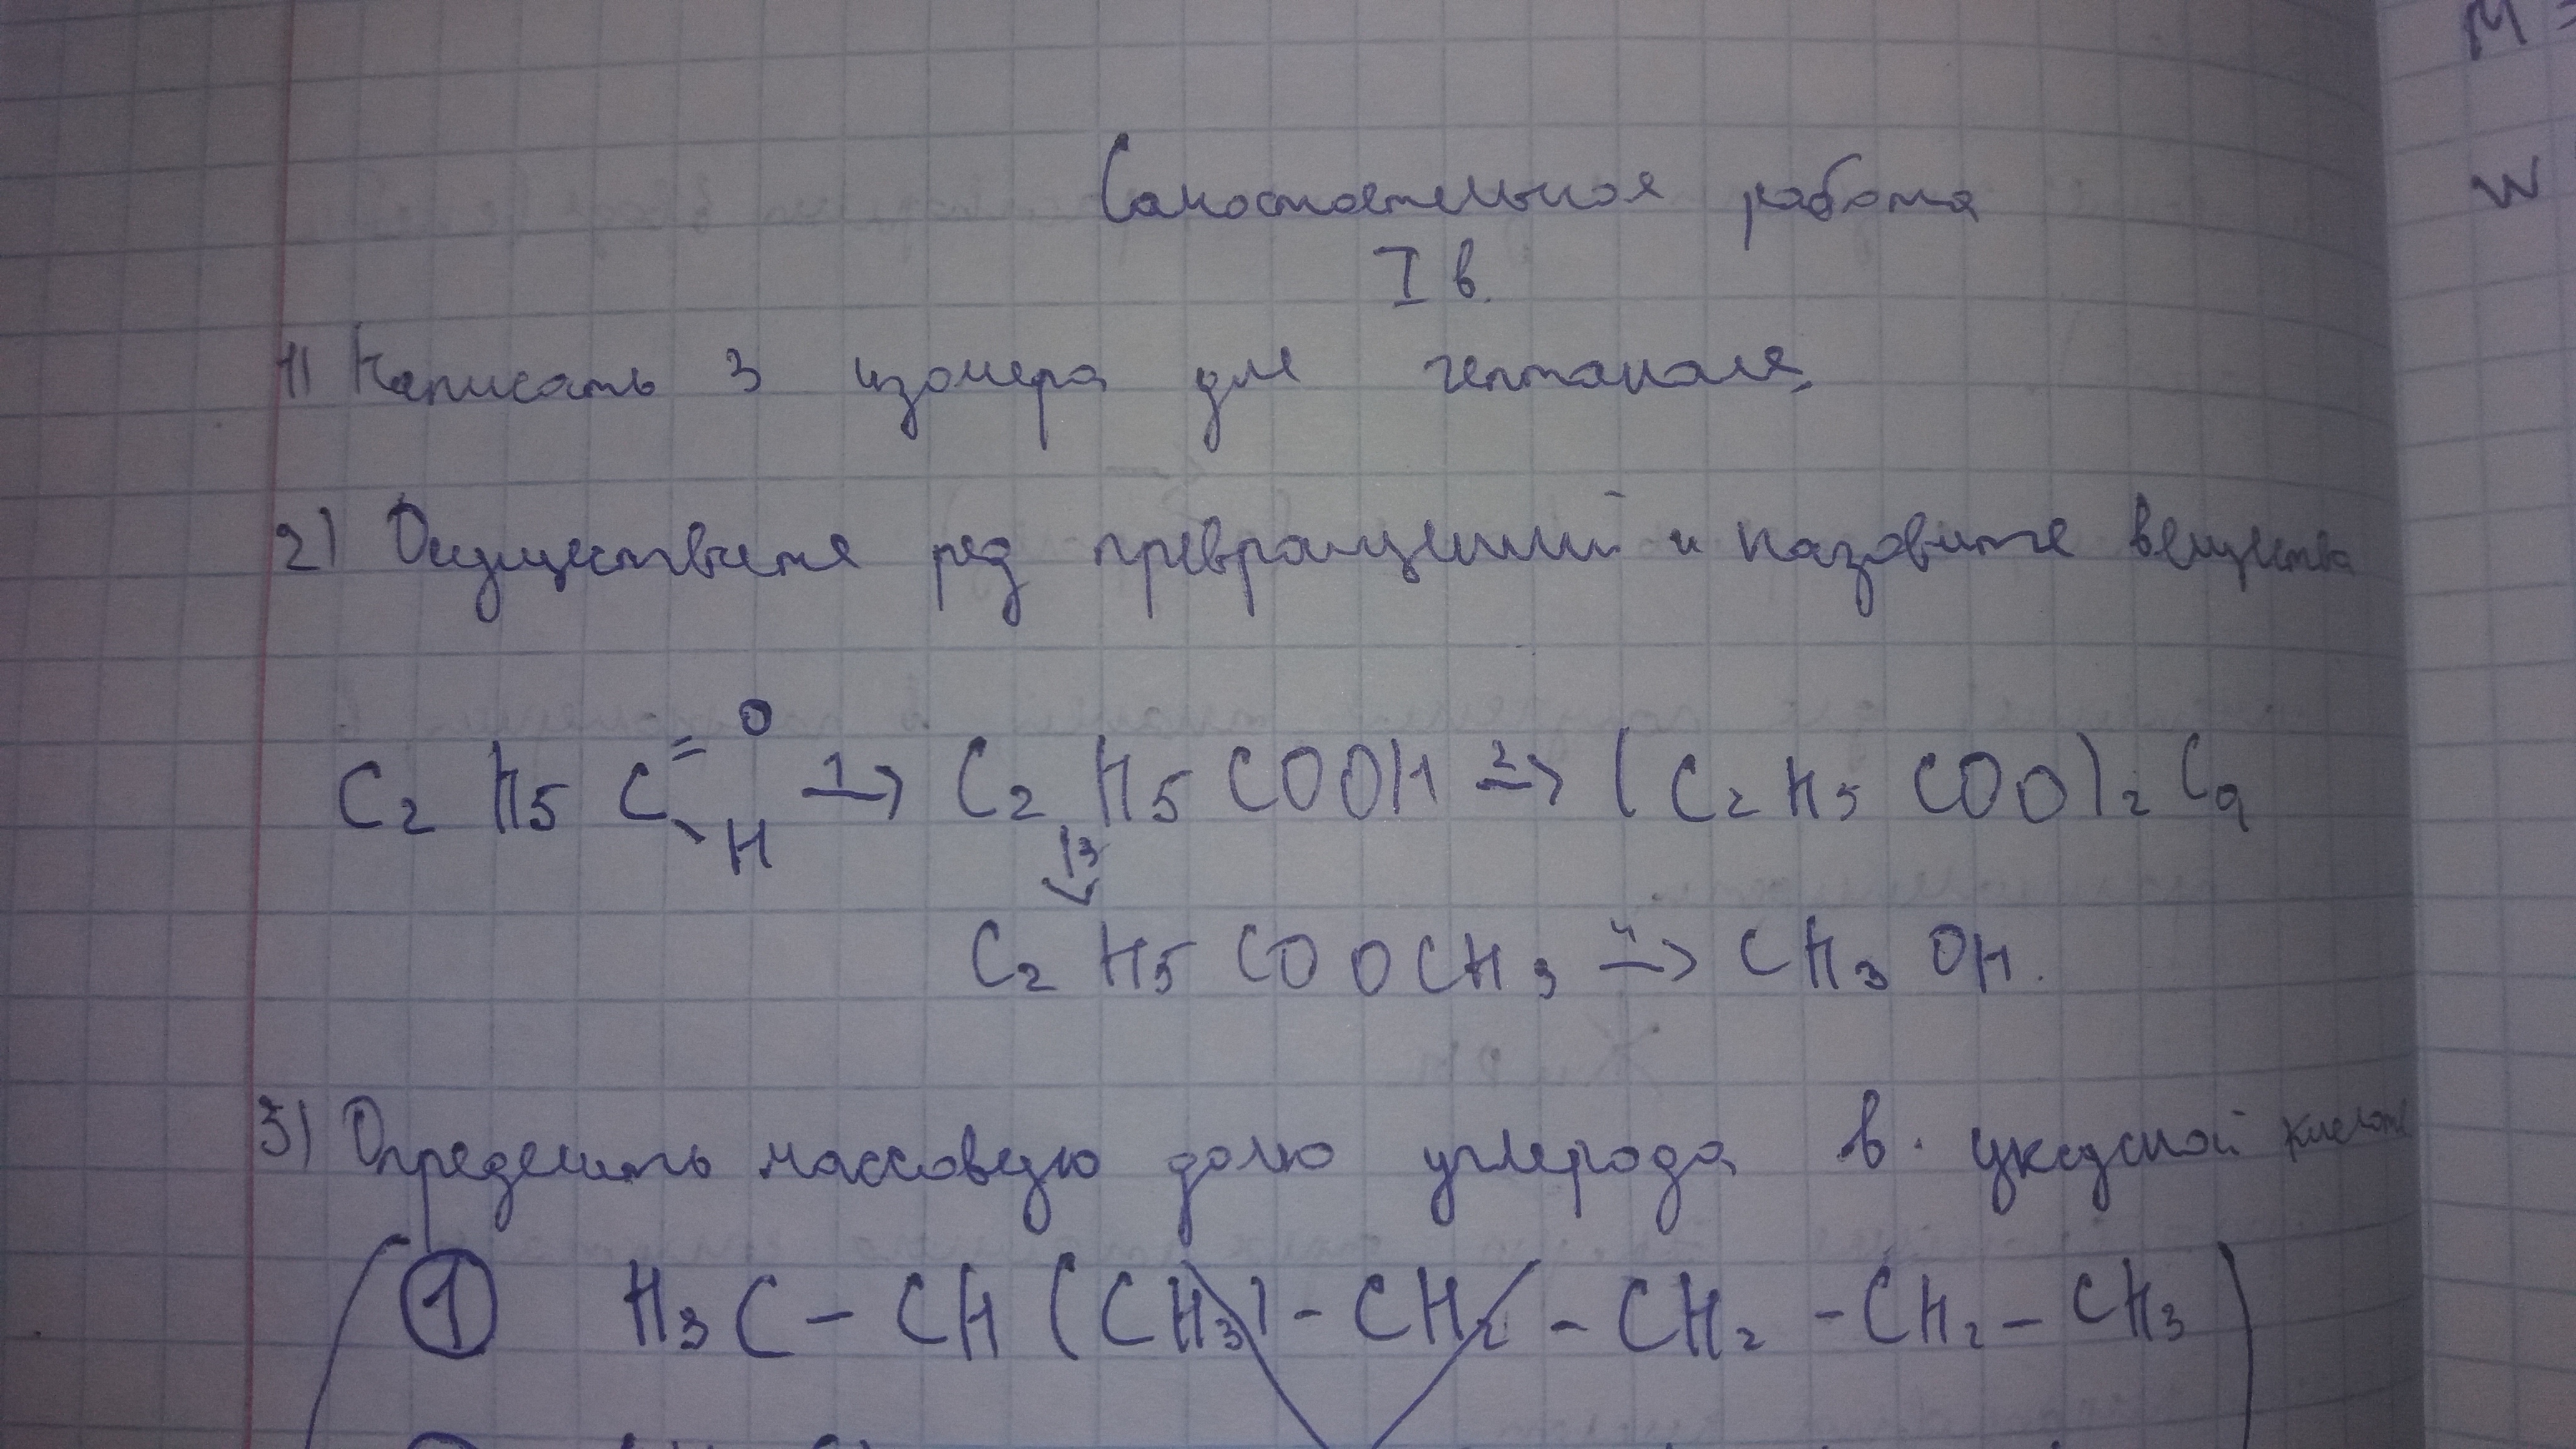 Самостоятельная работа
I в.
1) Написать 3 изомера для гептаналя,
2) Осуществите ряд превращений и назовите вещества
C2 H5 C =O -H 1→ C2 H5 COOH 2→ (C2 H5 COO)2 Ca
↓3
C2 H5 COOCH3 4→ CH3 OH.
3) Определить массовую долю углерода в уксусной кислоте
1 H3C - CH (CH3) - CH2 - CH2 - CH2 - CH3
M =
W